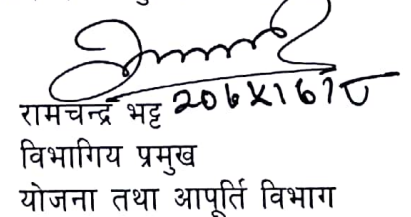 रामचन्द्र भट्ट
विभागिय प्रमुख
योजना तथा आपूर्ति विभाग